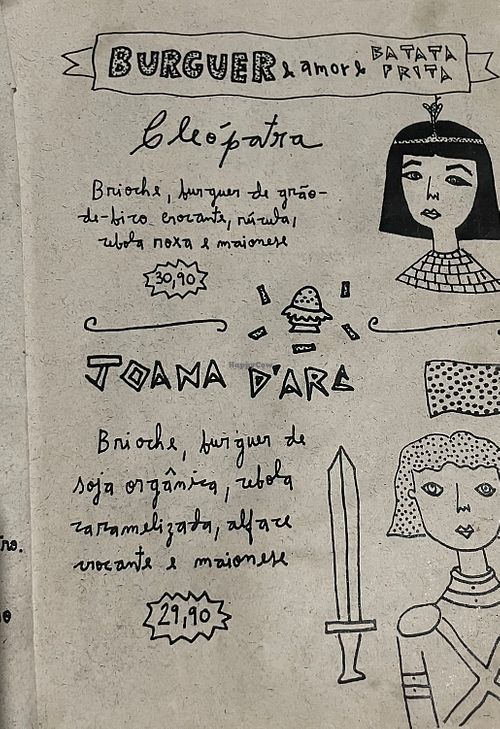 BURGUER & amor & BATATA FRITA
Cleópatra
Brioche, burguer de grão-
de-bico crocante, rúcula,
cebola roxa e maionese
30,90
HappyCow
JOANA D'ARC
Brioche, burguer de
soja orgânica, cebola
caramelizada, alface
crocante e maionese
29,90